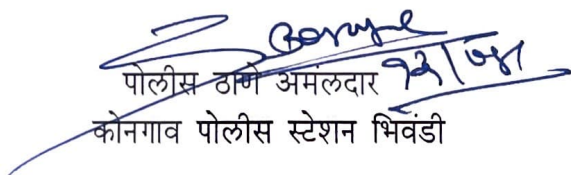 पोलीस ठाणे अमंलदार
कोनगाव पोलीस स्टेशन भिवंडी